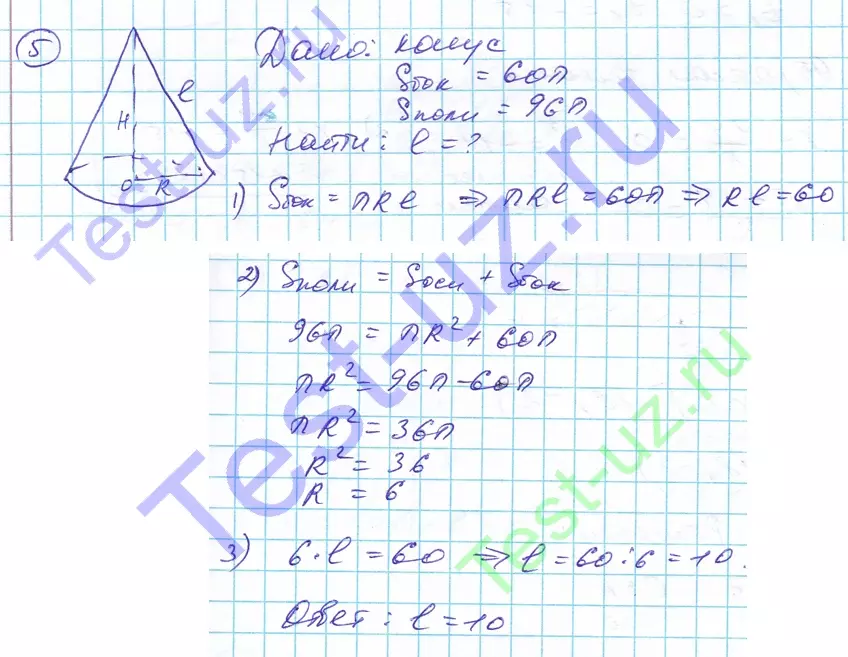 5
Дано: конус
Sбок = 60π
Sполн = 96π
Найти: l = ?
l
H
O R
1) Sбок = πRl ⇒ πRl = 60π ⇒ Rl = 60
2) Sполн = Sосн + Sбок
96π = πR² + 60π
πR² = 96π - 60π
πR² = 36π
R² = 36
R = 6
3) 6·l = 60 ⇒ l = 60:6 = 10.
Ответ: l = 10
Test-uz.ru
Test-uz.ru
Test-uz.ru